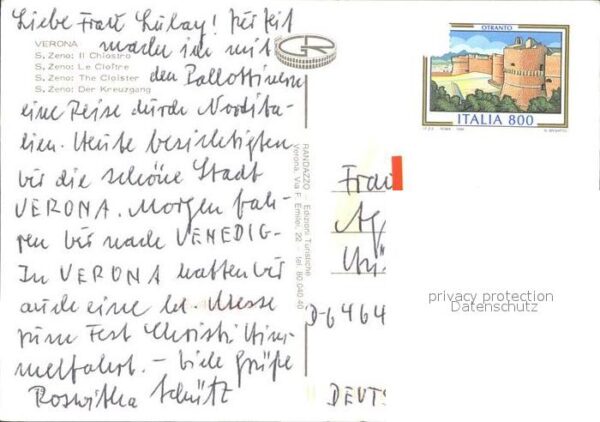 Liebe Frau Lulay! Zur Zeit
mache ich mit
den Pallottinern
eine Reise durch Nordita-
lien. Heute besichtigten
wir die schöne Stadt
VERONA. Morgen fah-
ren wir nach VENEDIG.
In VERONA hatten wir
auch eine hl. Messe
zum Fest Christi Him-
melfahrt. – Viele Grüße
Roswitha Schütz
VERONA
S. Zeno: Il Chiostro
S. Zeno: Le Cloître
S. Zeno: The Cloister
S. Zeno: Der Kreuzgang
RANDAZZO - Edizioni Turistiche
Verona, Via F. Emilei, 22 - tel. 80 040 40
OTRANTO
ITALIA 800
Frau
D-6464
DEUTS
privacy protection
Datenschutz